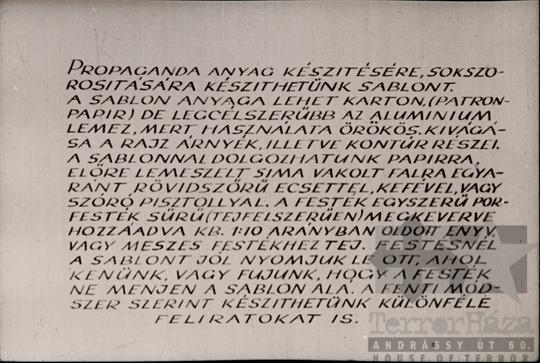 PROPAGANDA ANYAG KÉSZITÉSÉRE, SOKSZO-
ROSITÁSÁRA KÉSZITHETÜNK SABLONT.
A SABLON ANYAGA LEHET KARTON, (PATRON-
PAPIR) DE LEGCÉLSZERÜBB AZ ALUMINIUM
LEMEZ, MERT HASZNÁLATA ÖRÖKÖS. KIVÁGÁ-
SA A RAJZ ÁRNYÉK, ILLETVE KONTÚR RÉSZEI.
A SABLONNAL DOLGOZHATUNK PAPIRRA,
ELŐRE LEMESZELT SIMA VAKOLT FALRA EGYA-
RÁNT, RÖVIDSZŐRÜ ECSETTEL, KEFÉVEL, VAGY
SZÓRÓ PISZTOLLYAL. A FESTÉK EGYSZERÜ POR-
FESTÉK SŰRŰ (TEJFELSZERÜEN) MEGKEVERVE
HOZZÁADVA KB. 1:10 ARÁNYBAN OLDOTT ENYV,
VAGY MESZES FESTÉKHEZ TEJ. FESTÉSNÉL
A SABLONT JÓL NYOMJUK LE OTT, AHOL
KENÜNK, VAGY FUJUNK, HOGY A FESTÉK
NE MENJEN A SABLON ALÁ. A FENTI MÓD-
SZER SZERINT KÉSZITHETÜNK KÜLÖNFÉLE
FELIRATOKAT IS.
TerrorHáza
ANDRÁSSY ÚT 60.
HOUSE OF TERROR